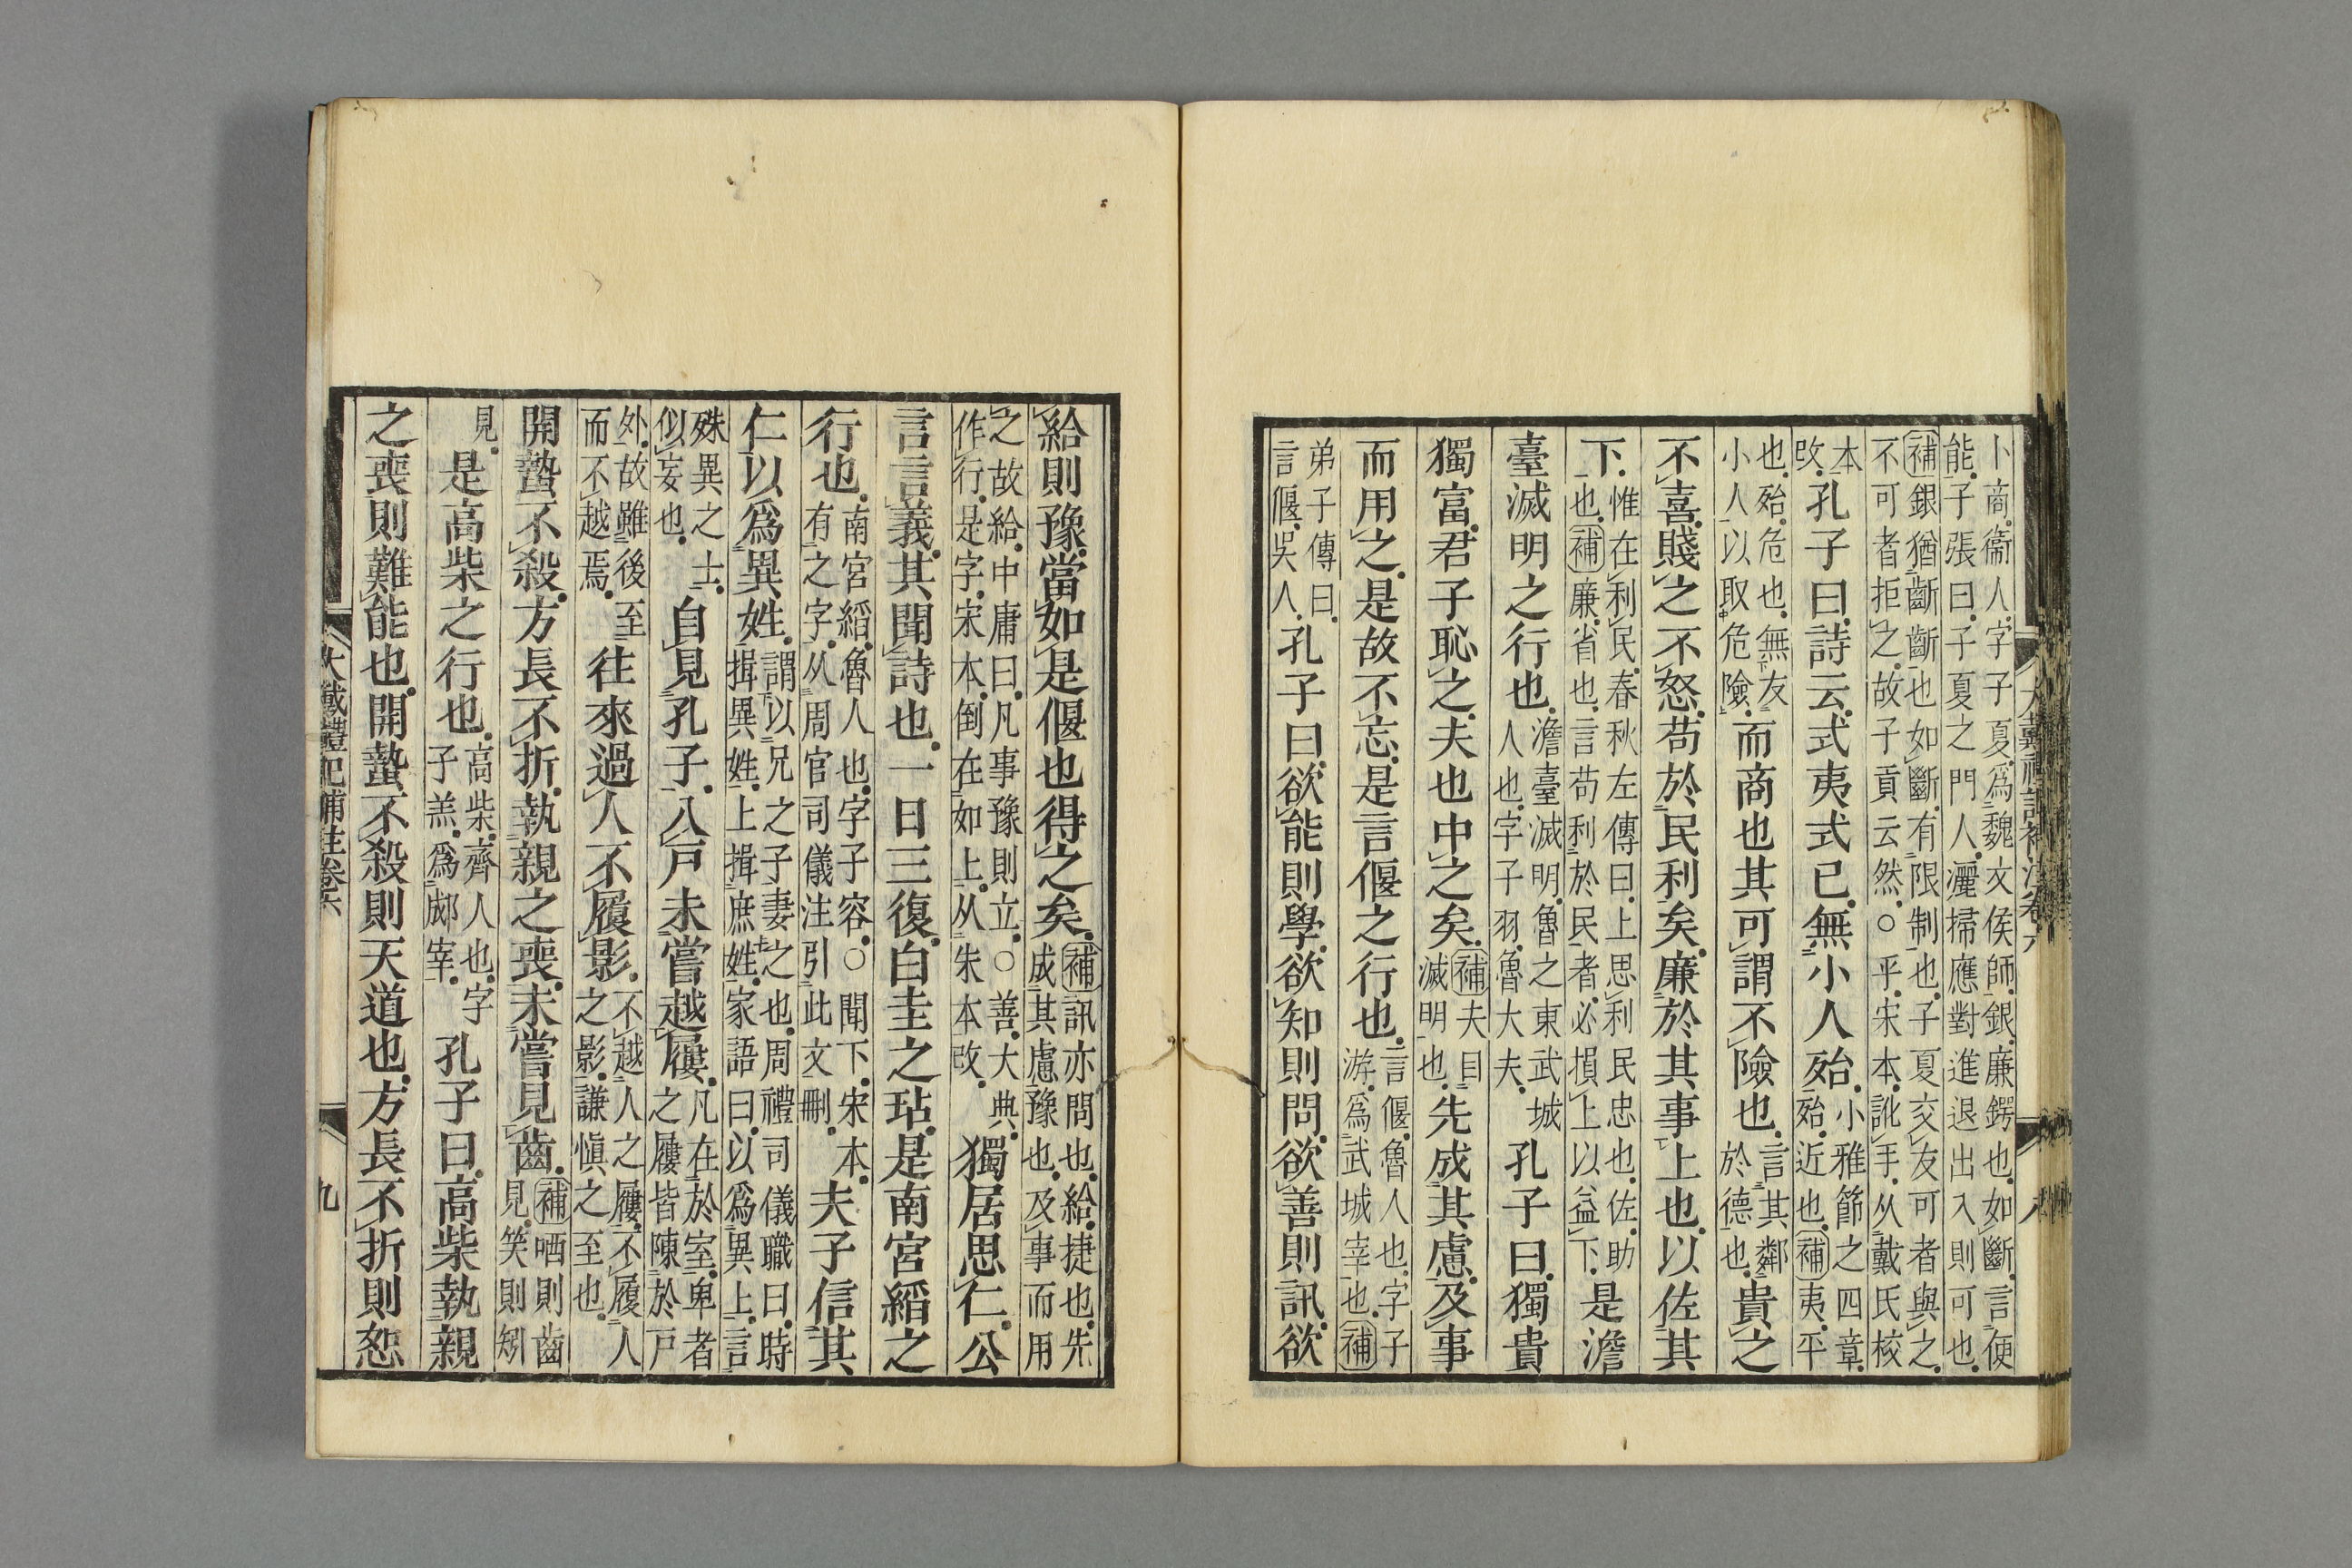 卜商衞人字子夏爲魏文侯師銀廉鍔也如斷言便
能子張曰子夏之門人灑掃應對進退出入則可也
補銀猶斷斷也如斷有限制也子夏交友可者與之
不可者拒之故子貢云然○平宋本訛手从戴氏校
本
改孔子曰詩云式夷式已無小人殆小雅節之四章
殆近也補夷平
也殆危也無友
小人以取危險而商也其可謂不險也言其鄰
於德也貴之
不喜賤之不怒苟於民利矣廉於其事上也以佐其
下惟在利民春秋左傳曰上思利民忠也佐助
也補廉省也言苟利於民者必損上以益下是澹
臺滅明之行也澹臺滅明魯之東武城
人也字子羽魯大夫孔子曰獨貴
獨富君子恥之夫也中之矣補夫目
滅明也先成其慮及事
而用之是故不忘是言偃之行也言偃魯人也字子
游爲武城宰也補
弟子傳曰
言偃吳人孔子曰欲能則學欲知則問欲善則訊欲
大戴禮記補注卷六
八
給則豫當如是偃也得之矣補訊亦問也給捷也先
成其慮豫也及事而用
之故給中庸曰凡事豫則立○善大典
作行是字宋本倒在如上从朱本改獨居思仁公
言言義其聞詩也一日三復白圭之玷是南宮縚之
行也南宮縚魯人也字子容○聞下宋本
有之字从周官司儀注引此文刪夫子信其
仁以爲異姓謂以兄之子妻之也周禮司儀職曰時
揖異姓上揖庶姓家語曰以爲異上言
殊異之士
似妄也自見孔子入戸未嘗越屨凡在於室卑者
之屨皆陳於戸
外故雖後至
而不越焉往來過人不履影不越人之屨不履人
之影謙愼之至也
開蟄不殺方長不折執親之喪未嘗見齒補哂則齒
見笑則矧
見是高柴之行也高柴齊人也字
子羔爲郕宰孔子曰高柴執親
之喪則難能也開蟄不殺則天道也方長不折則恕
大戴禮記補注卷六
九